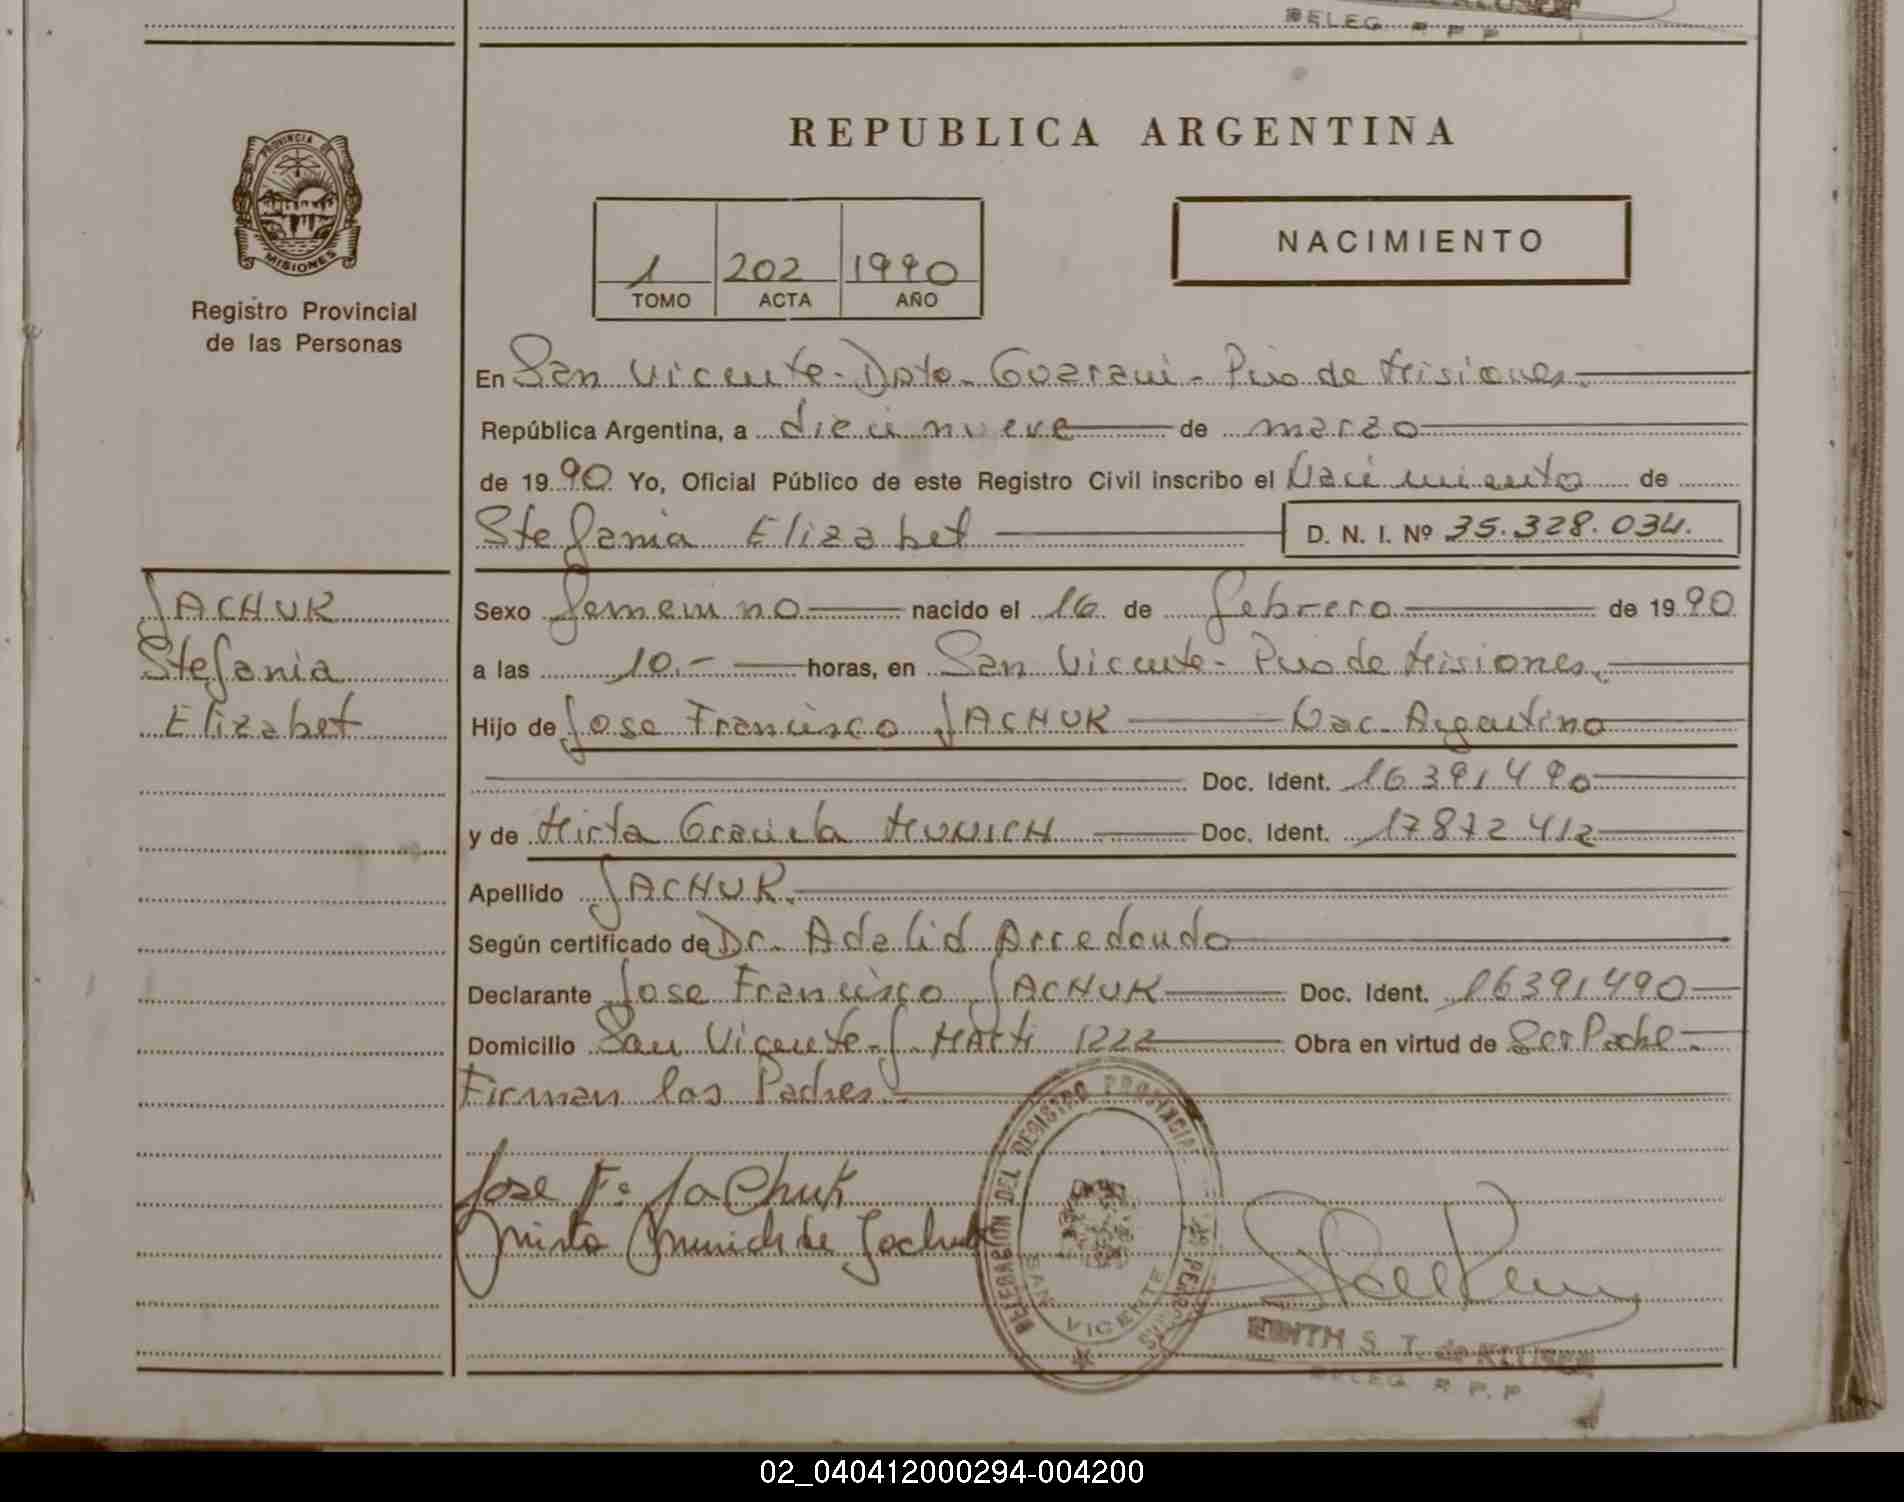 DELEG. R P P
PROVINCIA DE
MISIONES
Registro Provincial
de las Personas
REPUBLICA ARGENTINA
1 202 1990
TOMO ACTA AÑO
NACIMIENTO
En San Vicente - Dpto. Guarani - Pcia de Misiones.
República Argentina, a diecinueve de marzo
de 1990 Yo, Oficial Público de este Registro Civil inscribo el Nacimiento de
Stefania Elizabet D. N. I. Nº 35.328.034.
JACHUK
Stefania
Elizabet
Sexo femenino nacido el 16 de febrero de 1990
a las 10.- horas, en San Vicente - Pcia de Misiones.
Hijo de Jose Francisco JACHUK Nac. Argentino
Doc. Ident. 16391490
y de Mirta Graciela MUNICH Doc. Ident. 17872412
Apellido JACHUK.
Según certificado de Dr. Adalid Arredondo
Declarante Jose Francisco JACHUK Doc. Ident. 16391490
Domicilio San Vicente - J. MArti 1222 Obra en virtud de Ser Padre -
Firman los Padres.
Jose F. Jachuk
Mirta Munich de Jachuk
DELEGACION DEL REGISTRO PROVINCIAL DE LAS PERSONAS
SAN VICENTE
EDITH S. T. de KLUSER
DELEG. R P. P
02_040412000294-004200